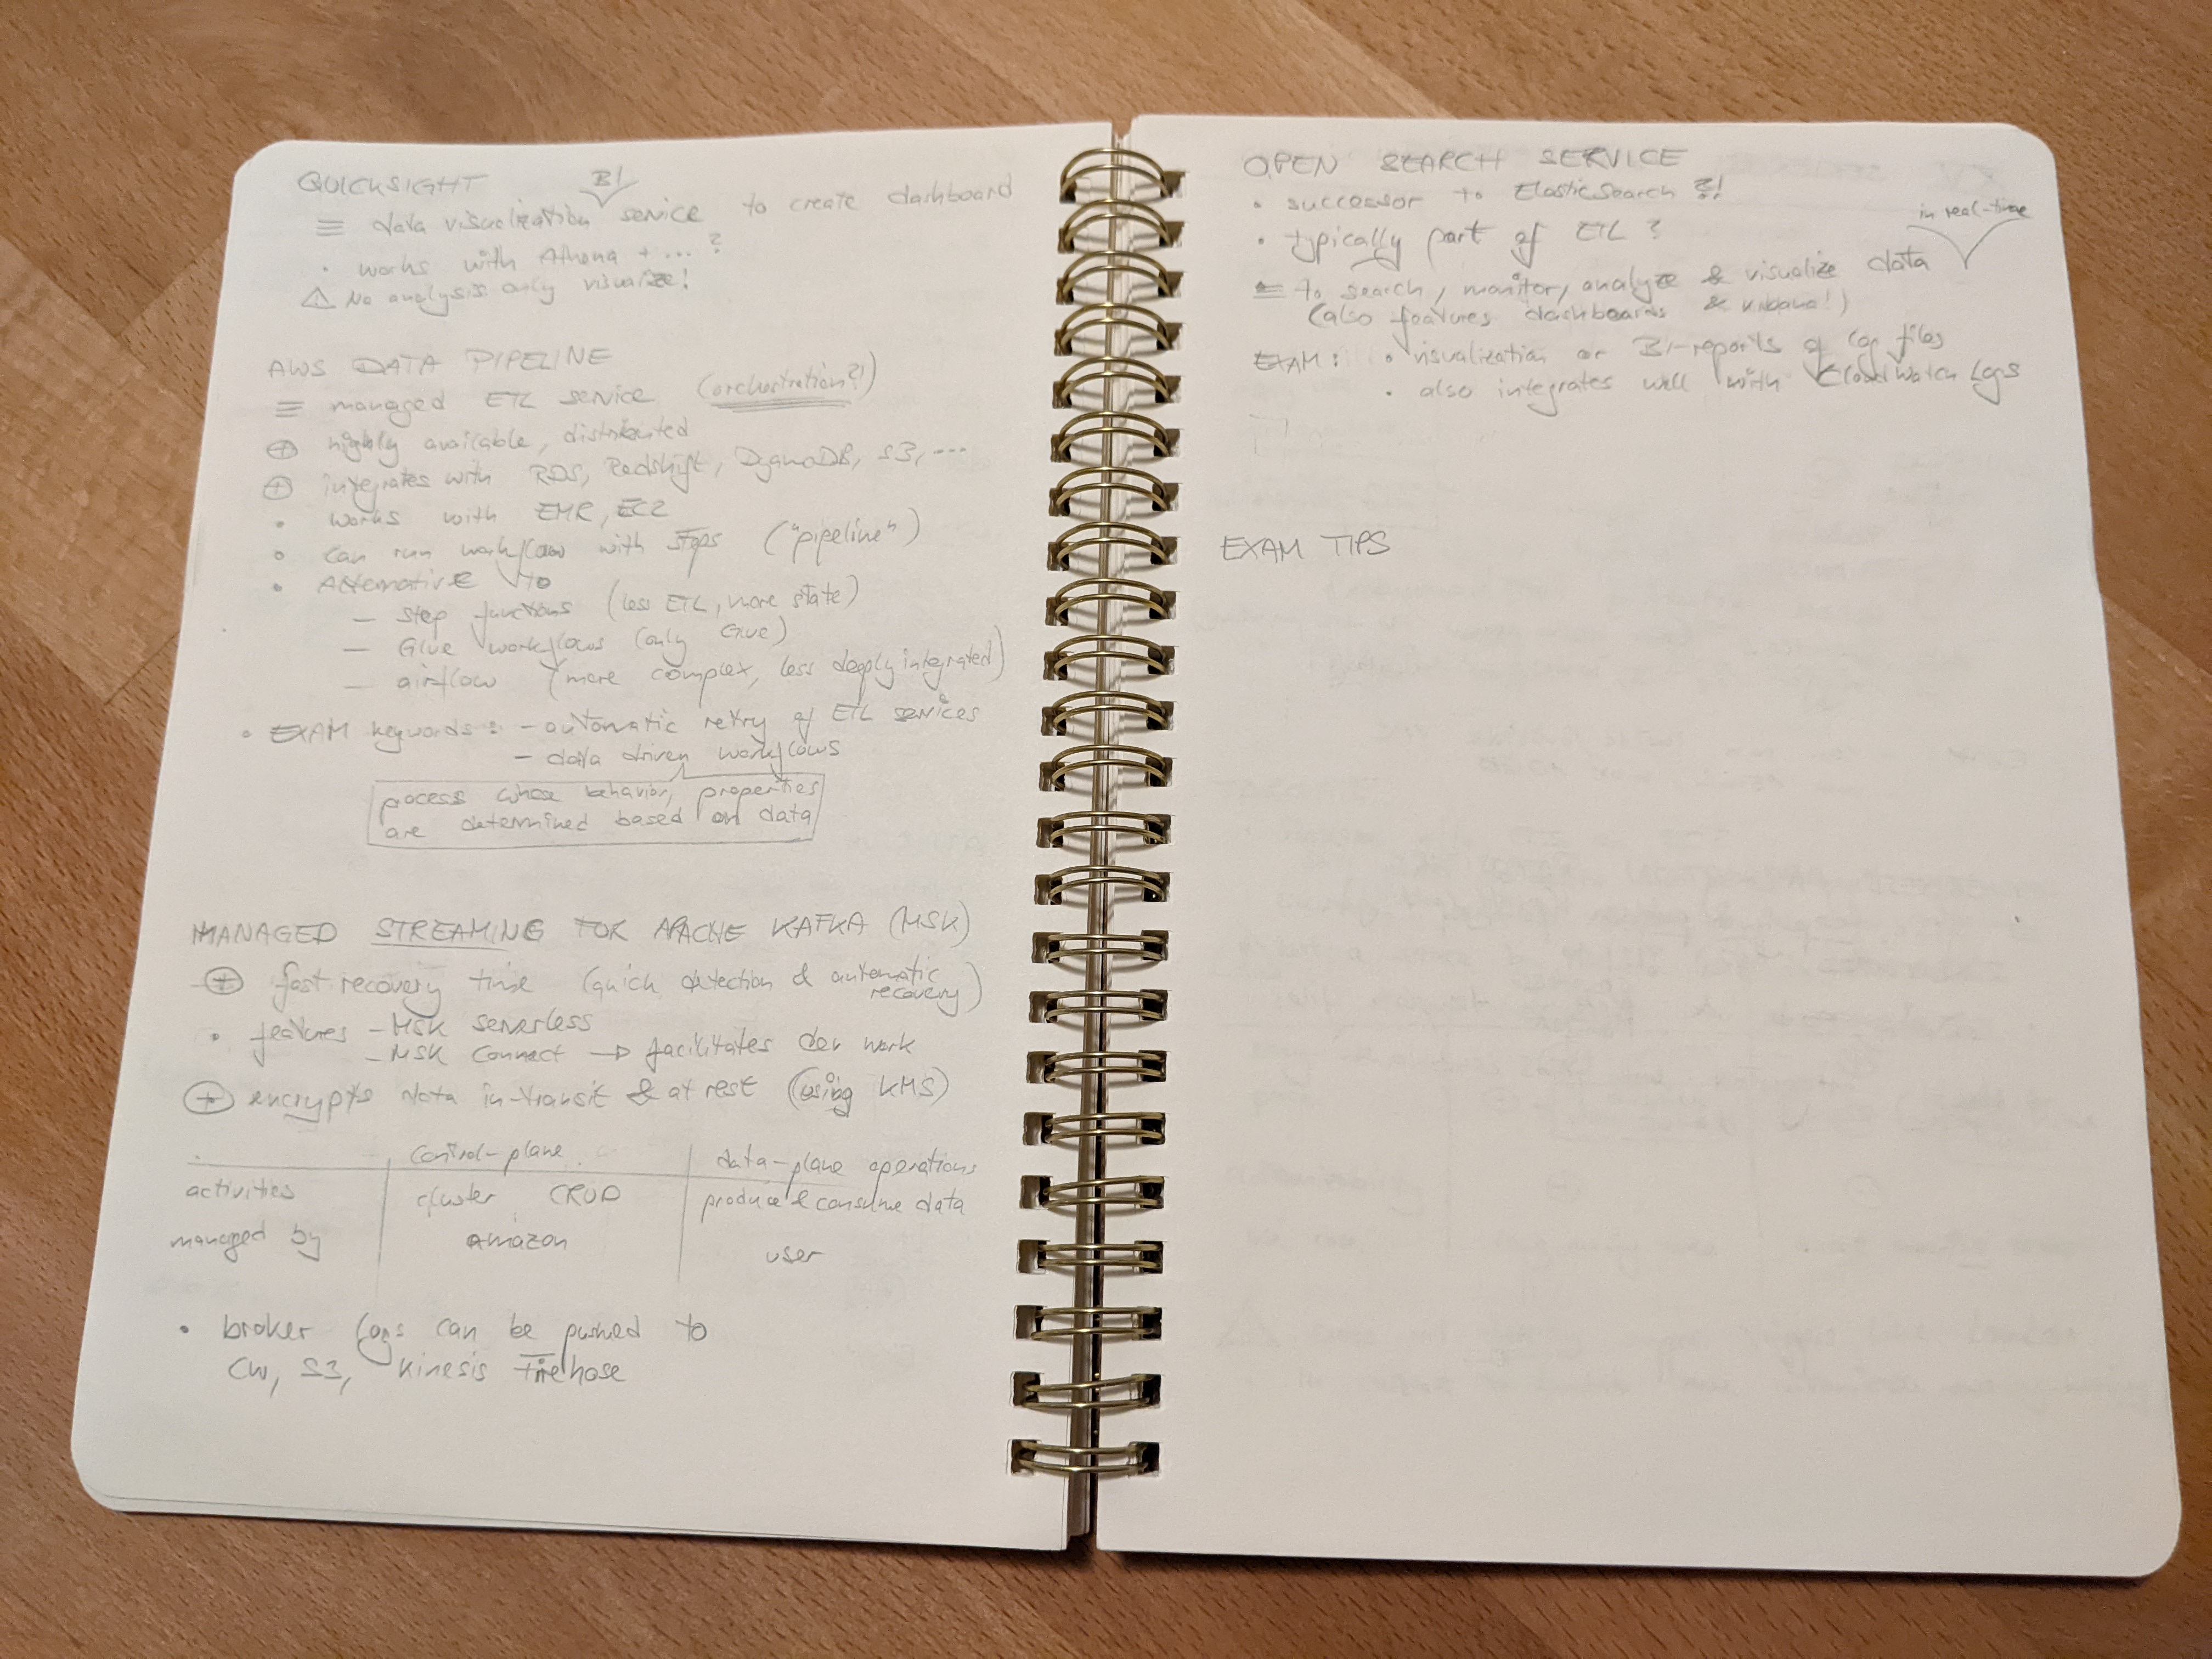 QUICKSIGHT
BI
≡ data visualization service to create dashboard
• works with Athena + ... ?
⚠ No analysis only visualize!
AWS DATA PIPELINE
≡ managed ETL service (orchestration?!)
⊕ highly available, distributed
⊕ integrates with RDS, Redshift, DynamoDB, S3, ...
• works with EMR, EC2
• can run workflow with steps ("pipeline")
• Alternative to
— step functions (less ETL, more state)
— Glue workflows (only Glue)
— airflow (more complex, less deeply integrated)
• EXAM keywords: - automatic retry of ETL services
- data driven workflows
process whose behavior, properties
are determined based on data
MANAGED STREAMING FOR APACHE KAFKA (MSK)
⊕ fast recovery time (quick detection & automatic
recovery)
• features - MSK serverless
- MSK Connect → facilitates dev work
⊕ encrypts data in-transit & at rest (using KMS)
control-plane data-plane operations
activities cluster CRUD produce & consume data
managed by Amazon user
• broker logs can be pushed to
CW, S3, Kinesis Firehose
OPEN SEARCH SERVICE
• successor to ElasticSearch ?!
• typically part of ETL ?
in real-time
≡ to search, monitor, analyze & visualize data
(also features dashboards & kibana!)
EXAM: • visualization or BI-reports of log files
• also integrates well with CloudWatch Logs
EXAM TIPS